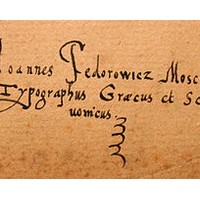 Joannes Fedorowicz Mosc
Typographus Græcus et Sc
uonicus